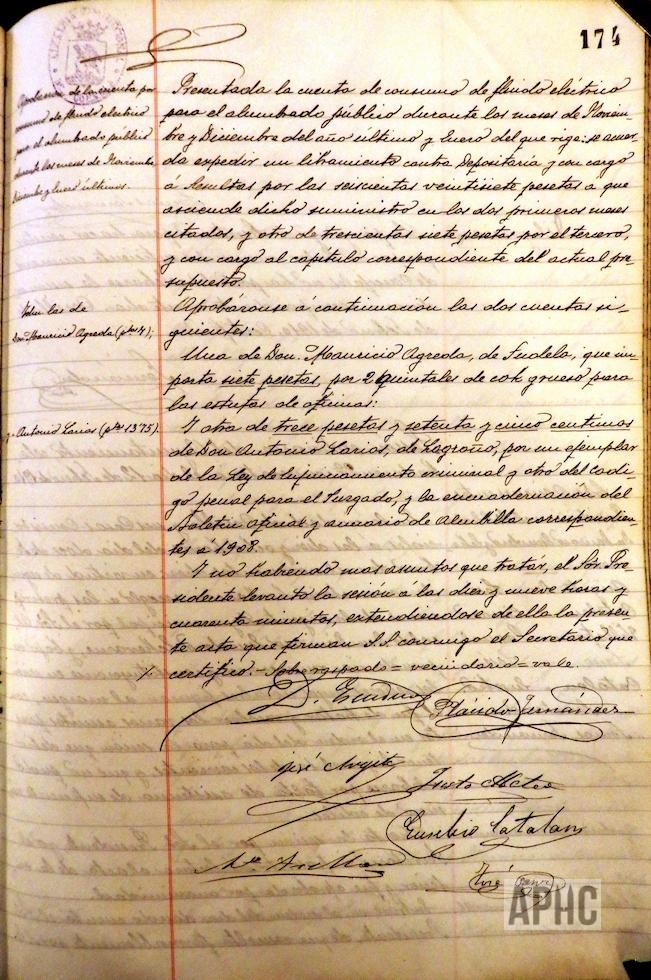 174
Aprobacion de la cuenta por
consumo de fluido electrico
para el alumbrado público
durante los meses de Noviembre
Diciembre y Enero últimos.
Presentada la cuenta de consumo de fluido eléctrico
para el alumbrado público durante los meses de Noviem-
bre y Diciembre del año último y Enero del que rige: se acuer-
da expedir un libramiento contra Depositaria y con cargo
á Resultas por las seiscientas veintisiete pesetas a que
asciende dicho suministro en los dos primeros meses
citados, y otro de trescientas siete pesetas por el tercero,
y con cargo al capítulo correspondiente del actual pre-
supuesto.
Idem las de
Don Mauricio Agreda (ptas 7);
Aprobáronse á continuación las dos cuentas si-
guientes:
Una de Don Mauricio Agreda, de Tudela, que im-
porta siete pesetas, por 2 quintales de cok grueso para
las estufas de oficinas:
y Antonio Larios (ptas 13'75).
Y otra de trece pesetas y setenta y cinco centimos
de Don Antonio Larios, de Logroño, por un ejemplar
de la Ley de Enjuiciamiento criminal y otro del Codi-
go penal para el Juzgado, y la encuadernación del
Boletin oficial y anuario de Alcubilla correspondien-
tes á 1908.
Y no habiendo mas asuntos que tratár, el Sór. Pre-
sidente levanto la sesión á las diez y nueve horas y
cuarenta minutos, extendiendose de ella la presen-
te acta que firman S.S. conmigo el Secretario que
certifico. - Sobre raspado = vecindario = vale.
Plácido Fernández
José
Justo
Eusebio Catalan
José
APHC